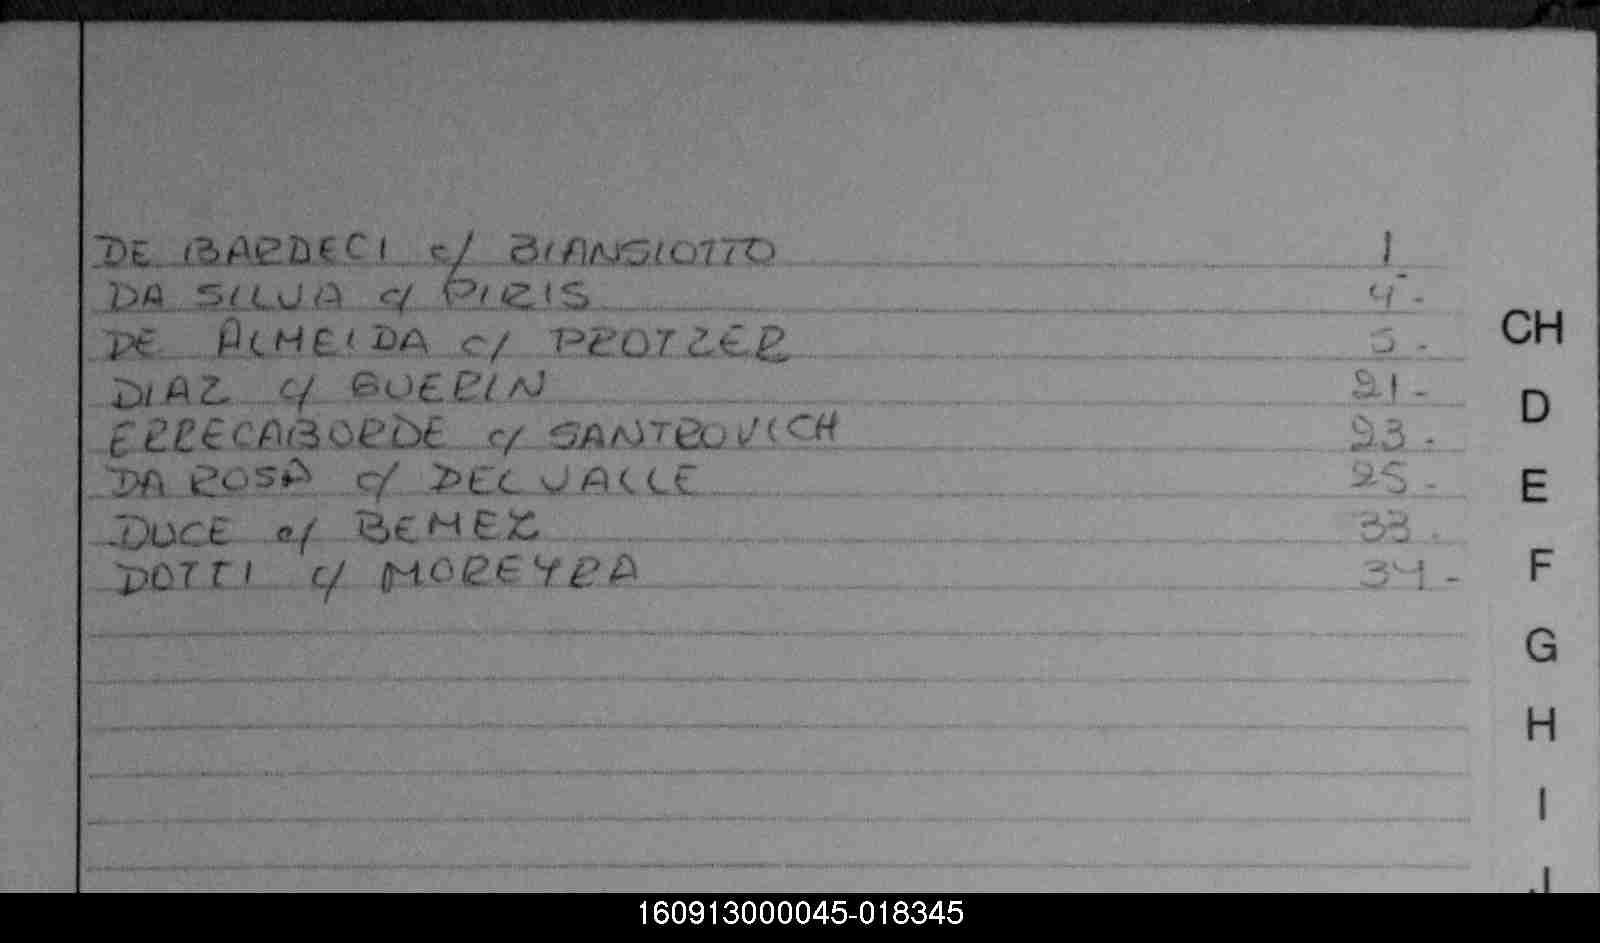 DE BARDECI c/ BIANSIOTTO 1
DA SILVA c/ PIRIS 4-
DE ALMEIDA c/ PROTZER 5-
DIAZ c/ GUERIN 21-
ERRECABORDE c/ SANTROVICH 23-
DA ROSA c/ DELVALLE 25-
DUCE c/ BEMEZ 33.
DOTTI c/ MOREYRA 34-
CH
D
E
F
G
H
I
J
160913000045-018345